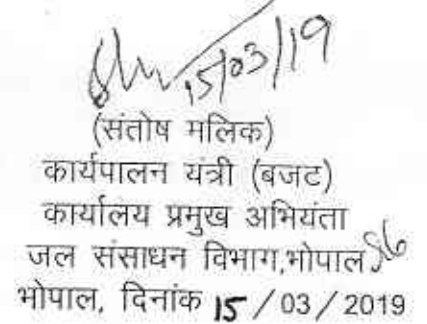 15/03/19
(संतोष मलिक)
कार्यपालन यंत्री (बजट)
कार्यालय प्रमुख अभियंता
जल संसाधन विभाग,भोपाल
भोपाल, दिनांक 15 / 03 / 2019